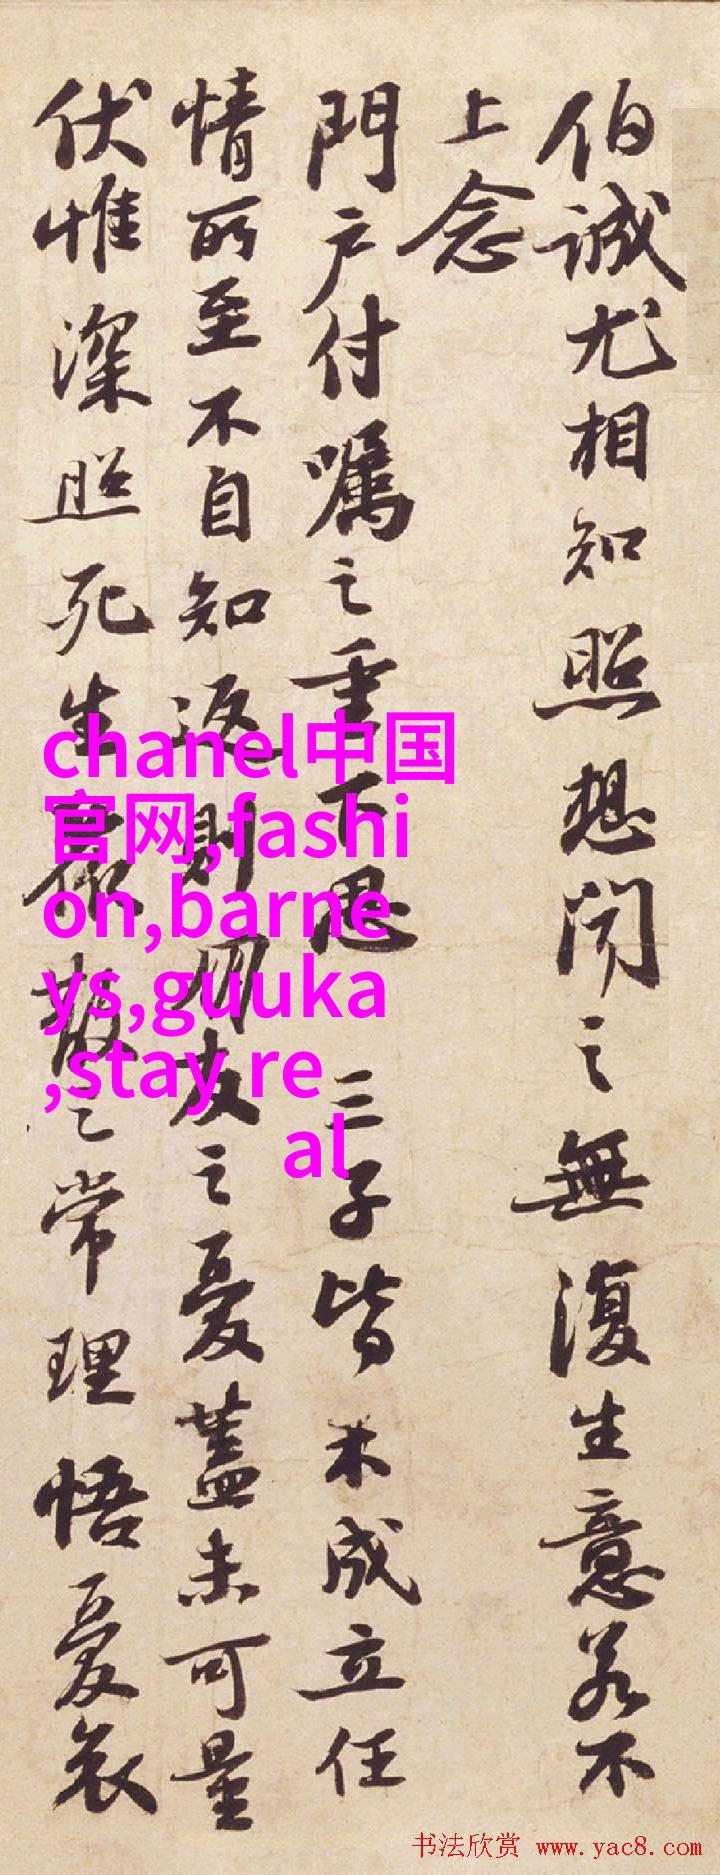 伯誠尤相知照想聞之無復生意若不
上念
門户付嘱之重下思三子皆未成立任
情所至不自知返則朋友之憂蓋未可量
伏惟深照死生聚散之常理悟憂哀
chanel中国
官网,fashi
on,barne
ys,guuka
,stay re
al
书法欣赏 www.yac8.com